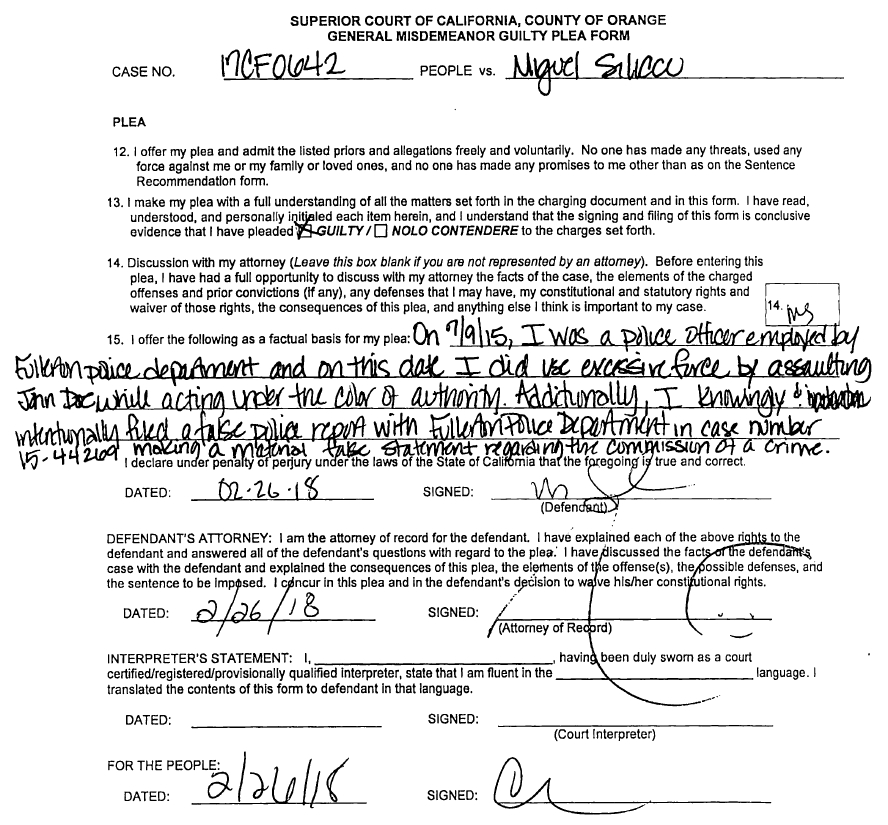 SUPERIOR COURT OF CALIFORNIA, COUNTY OF ORANGE
GENERAL MISDEMEANOR GUILTY PLEA FORM
CASE NO. 17CF0642 PEOPLE vs. Miguel Siliceo
PLEA
12. I offer my plea and admit the listed priors and allegations freely and voluntarily. No one has made any threats, used any
force against me or my family or loved ones, and no one has made any promises to me other than as on the Sentence
Recommendation form.
13. I make my plea with a full understanding of all the matters set forth in the charging document and in this form. I have read,
understood, and personally initialed each item herein, and I understand that the signing and filing of this form is conclusive
evidence that I have pleaded ☒ GUILTY / ☐ NOLO CONTENDERE to the charges set forth.
14. Discussion with my attorney (Leave this box blank if you are not represented by an attorney). Before entering this
plea, I have had a full opportunity to discuss with my attorney the facts of the case, the elements of the charged
offenses and prior convictions (if any), any defenses that I may have, my constitutional and statutory rights and
waiver of those rights, the consequences of this plea, and anything else I think is important to my case.
14. ms
15. I offer the following as a factual basis for my plea: On 7/9/15, I was a police officer employed by
Fullerton police department and on this date I did use excessive force by assaulting
John Doe while acting under the color of authority. Additionally, I knowingly &
intentionally filed a false police report with Fullerton Police Department in case number
15-44269 making a material false statement regarding the commission of a crime.
I declare under penalty of perjury under the laws of the State of California that the foregoing is true and correct.
DATED: 02-26-18 SIGNED:
(Defendant)
DEFENDANT'S ATTORNEY: I am the attorney of record for the defendant. I have explained each of the above rights to the
defendant and answered all of the defendant's questions with regard to the plea. I have discussed the facts of the defendant's
case with the defendant and explained the consequences of this plea, the elements of the offense(s), the possible defenses, and
the sentence to be imposed. I concur in this plea and in the defendant's decision to waive his/her constitutional rights.
DATED: 2/26/18 SIGNED:
(Attorney of Record)
INTERPRETER'S STATEMENT: I, , having been duly sworn as a court
certified/registered/provisionally qualified interpreter, state that I am fluent in the language. I
translated the contents of this form to defendant in that language.
DATED: SIGNED:
(Court Interpreter)
FOR THE PEOPLE:
DATED: 2/26/18 SIGNED: